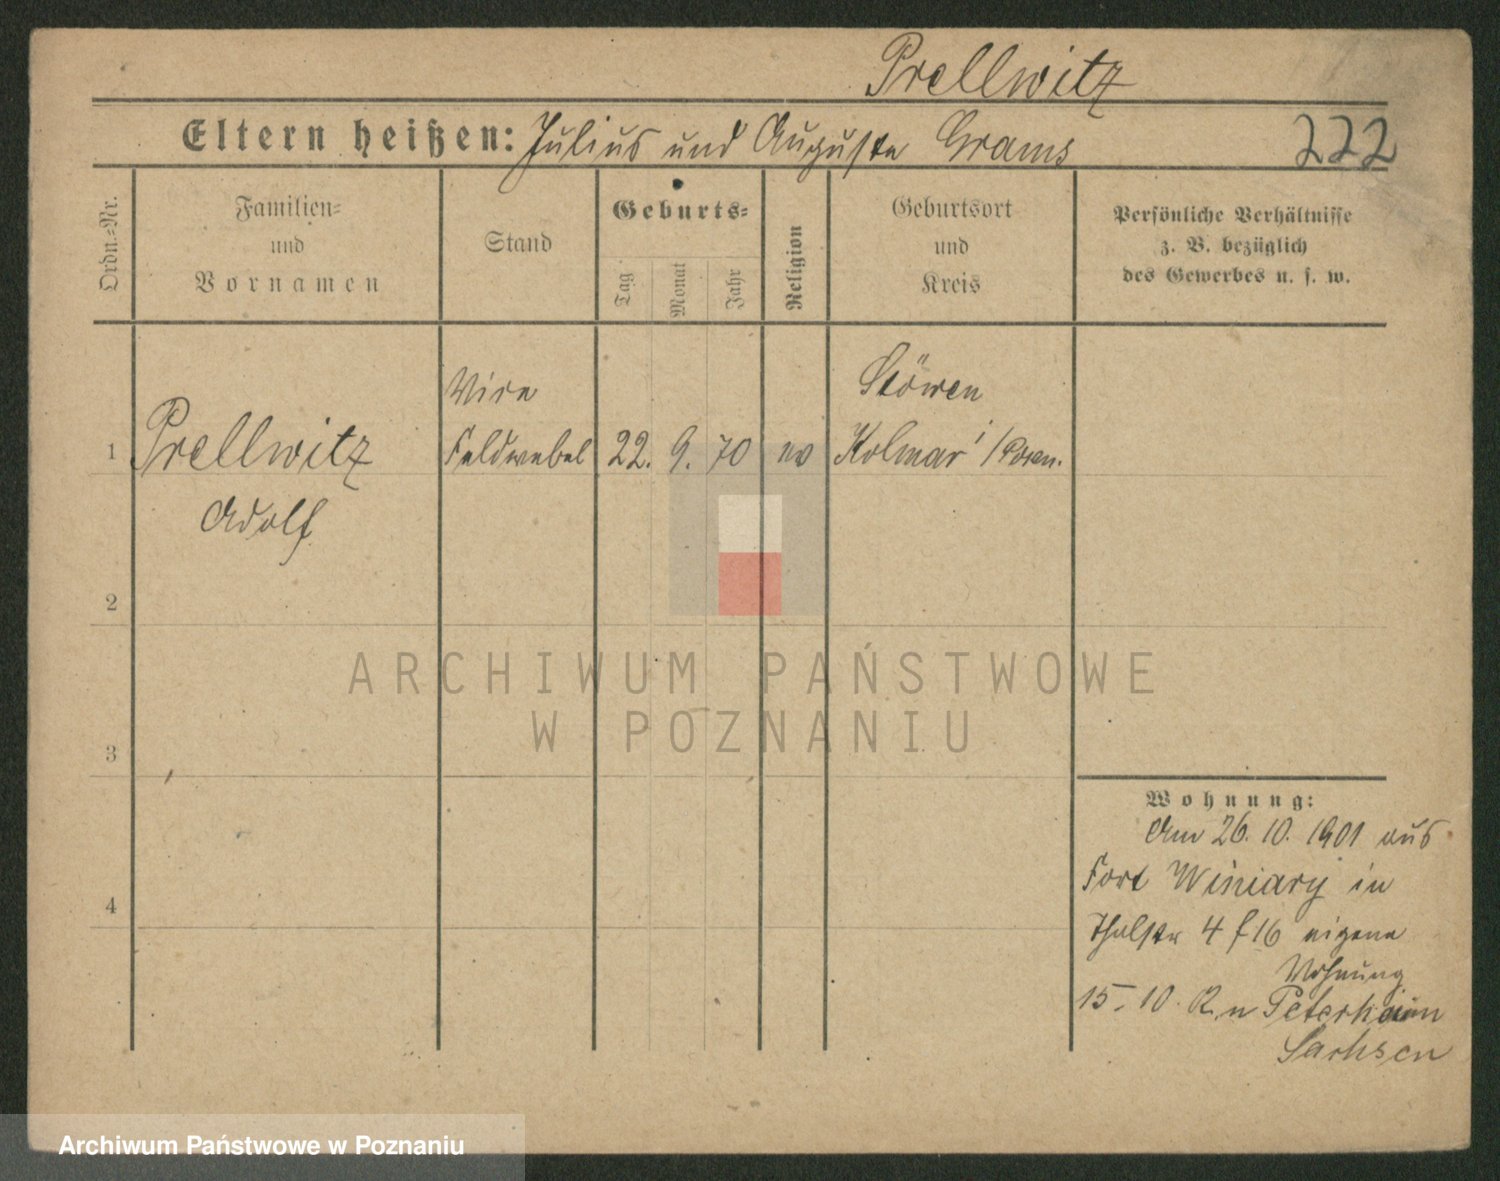 Prellwitz
Eltern heißen: Julius und Auguste Grams 222
Ordn.-Nr.
Familien-
und
Vornamen
Stand
Geburts-
Tag
Monat
Jahr
Religion
Geburtsort
und
Kreis
Persönliche Verhältnisse
z. B. bezüglich
des Gewerbes u. s. w.
Vice Stöwen
1 Prellwitz Feldwebel 22. 9. 70 ev Kolmar i/Posen.
Adolf
2
ARCHIWUM PAŃSTWOWE
W POZNANIU
3
Wohnung:
Am 26. 10. 1901 aus
Fort Winiary in
4
Thalstr 4 f 16 eigene
Wohnung
15. 10. 02 n Peterhain
Sachsen
Archiwum Państwowe w Poznaniu